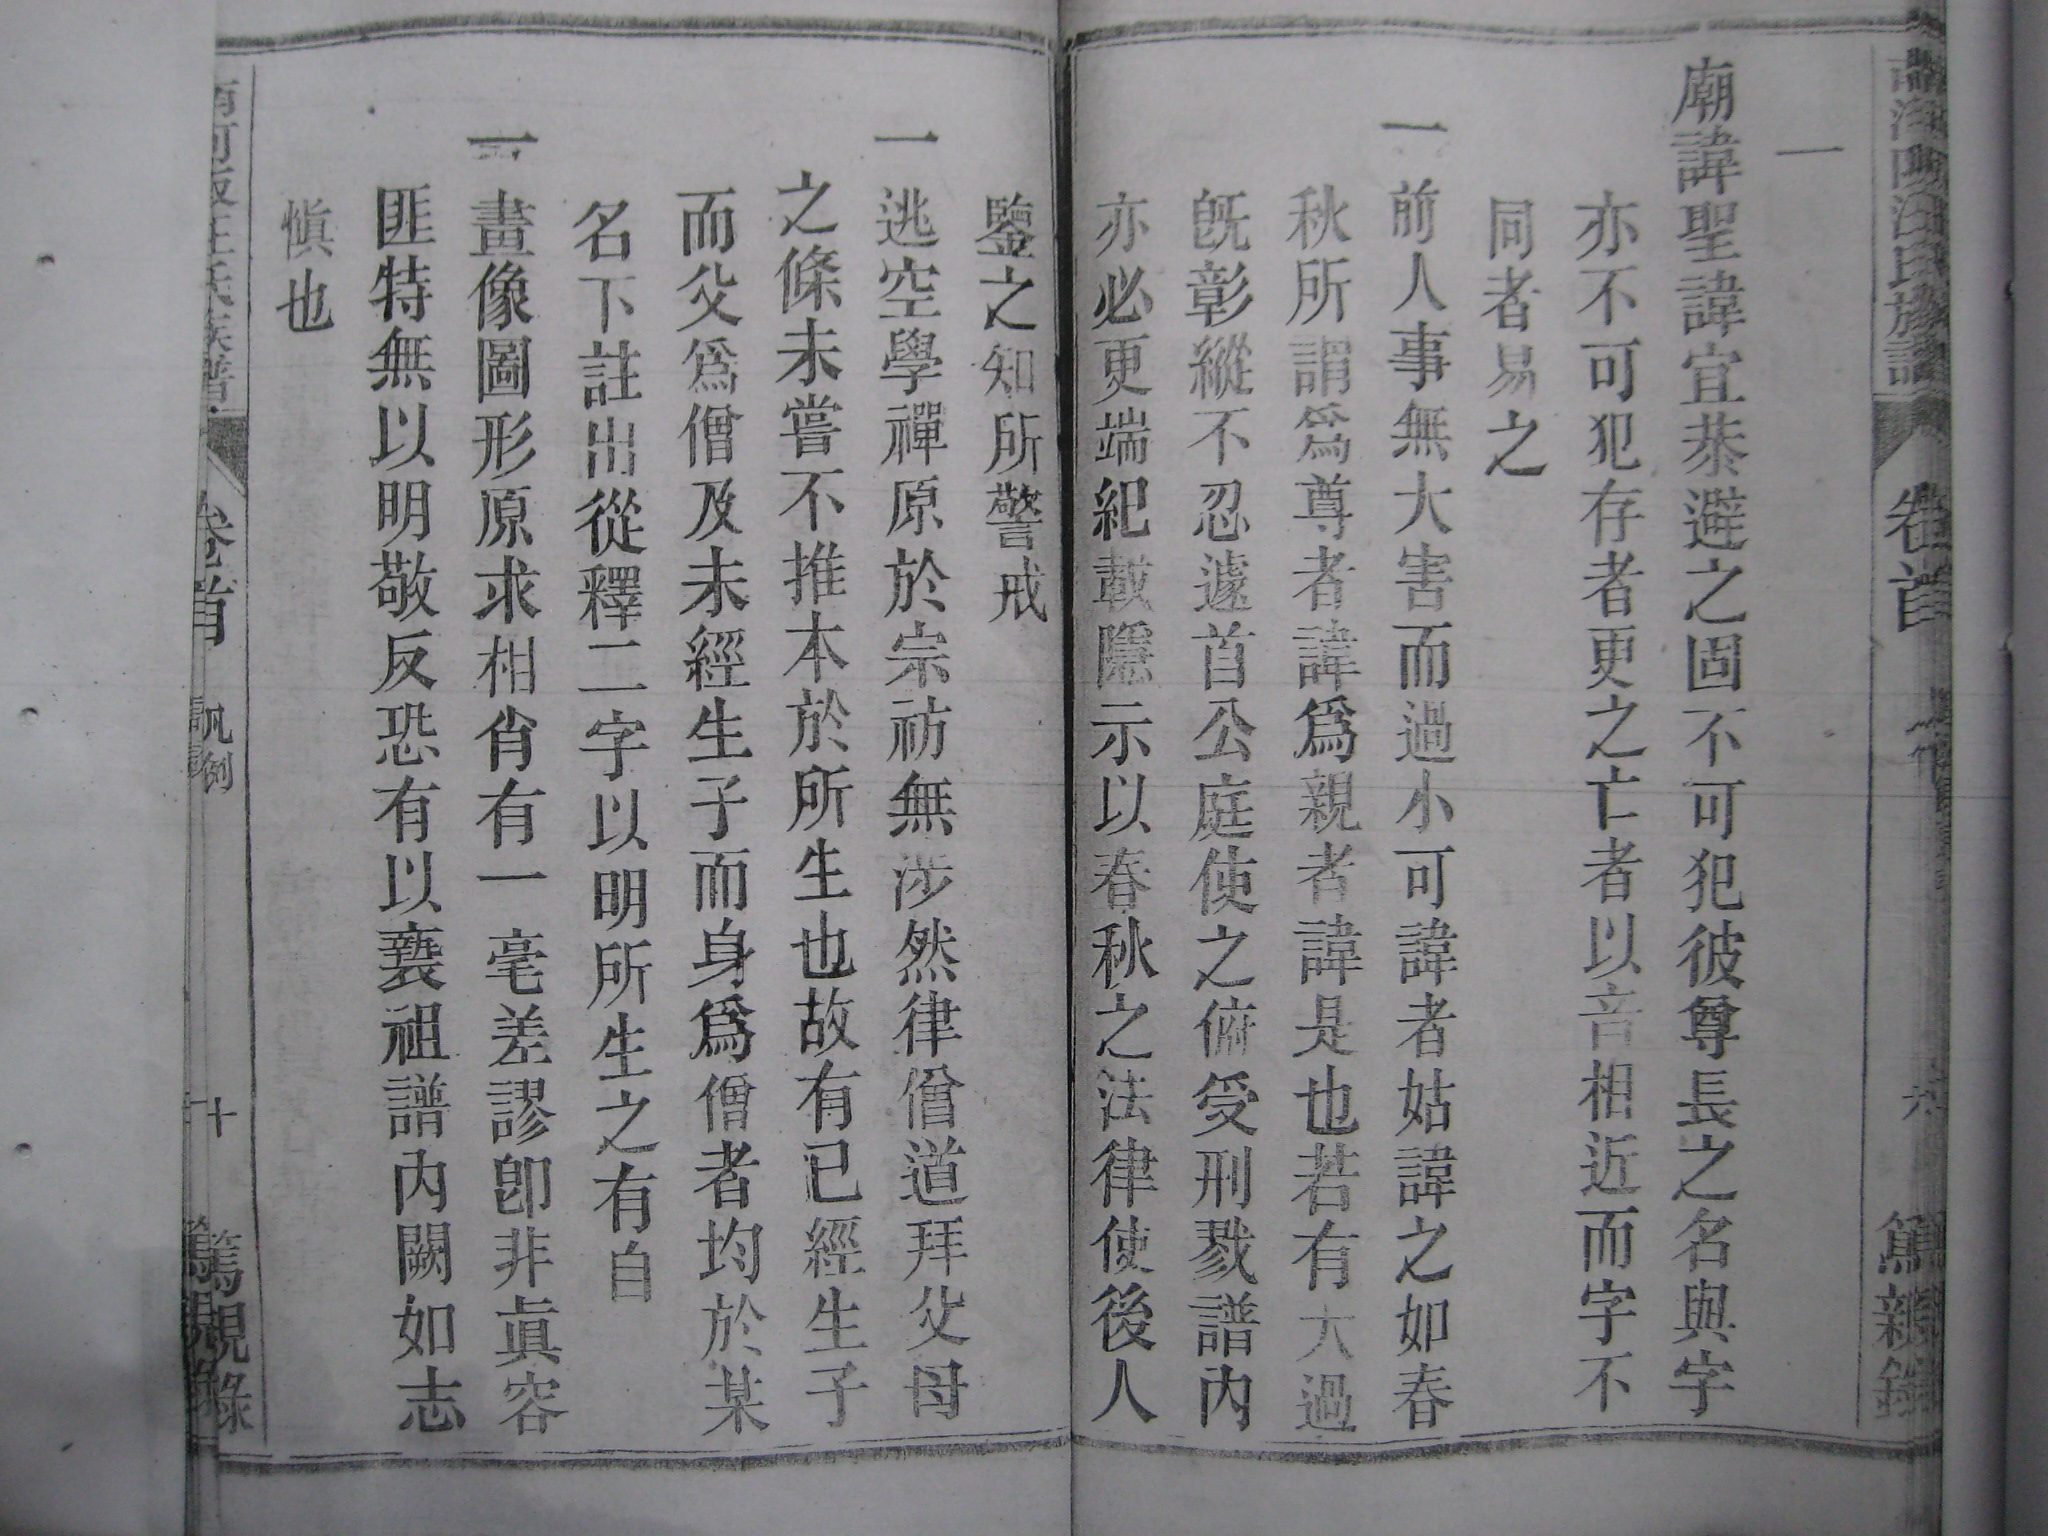 一
廟諱聖諱宜恭避之固不可犯彼尊長之名與字
亦不可犯存者更之亡者以音相近而字不
同者易之
一前人事無大害而過小可諱者姑諱之如春
秋所謂爲尊者諱爲親者諱是也若有大過
既彰縱不忍遽首公庭使之俯受刑戮譜內
亦必更端紀載隱示以春秋之法律使後人
鑒之知所警戒
一逃空學禪原於宗祊無涉然律僧道拜父母
之條未嘗不推本於所生也故有已經生子
而父爲僧及未經生子而身爲僧者均於某
名下註出從釋二字以明所生之有自
一畫像圖形原求相肖有一毫差謬卽非眞容
匪特無以明敬反恐有以䙝祖譜內闕如志
愼也
卷首
凡例
十
篤親錄